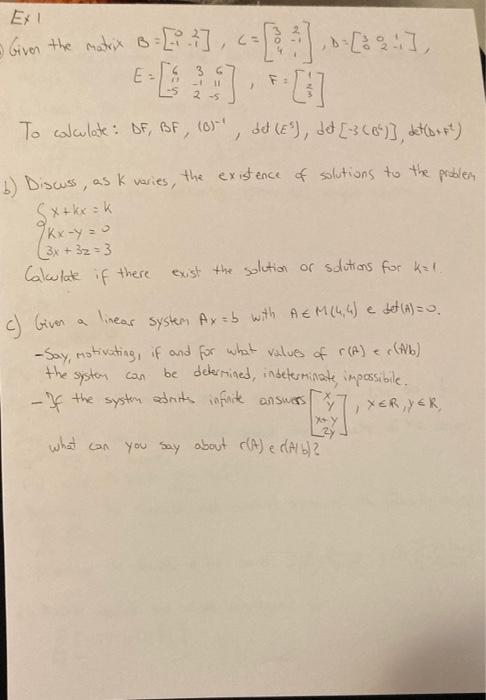 Ex 1
Given the matrix B = [0 2 -1 -1], C = [3 2 0 -1 4 1], D = [3 0 1 0 2 -1],
E = [6 3 6 11 -1 11 -5 2 -5], F = [1 2 3]
To calculate: DF, BF, (B)⁻¹, det (E⁵), det [-3(B⁶)], det(D+Fᵗ)
b) Discuss, as K varies, the existence of solutions to the problem
{ x + kx = k
kx - y = 0
3x + 3z = 3
Calculate if there exist the solution or solutions for k=1.
c) Given a linear system Ax = b with A ∈ M(4,4) e det(A)=0.
- Say, motivating, if and for what values of r(A) e r(A/b)
the system can be determined, indeterminate, impossibile.
- If the system admits infinite answers [x y x+y 2y], x∈R, y∈R,
what can you say about r(A) e r(A/b)?